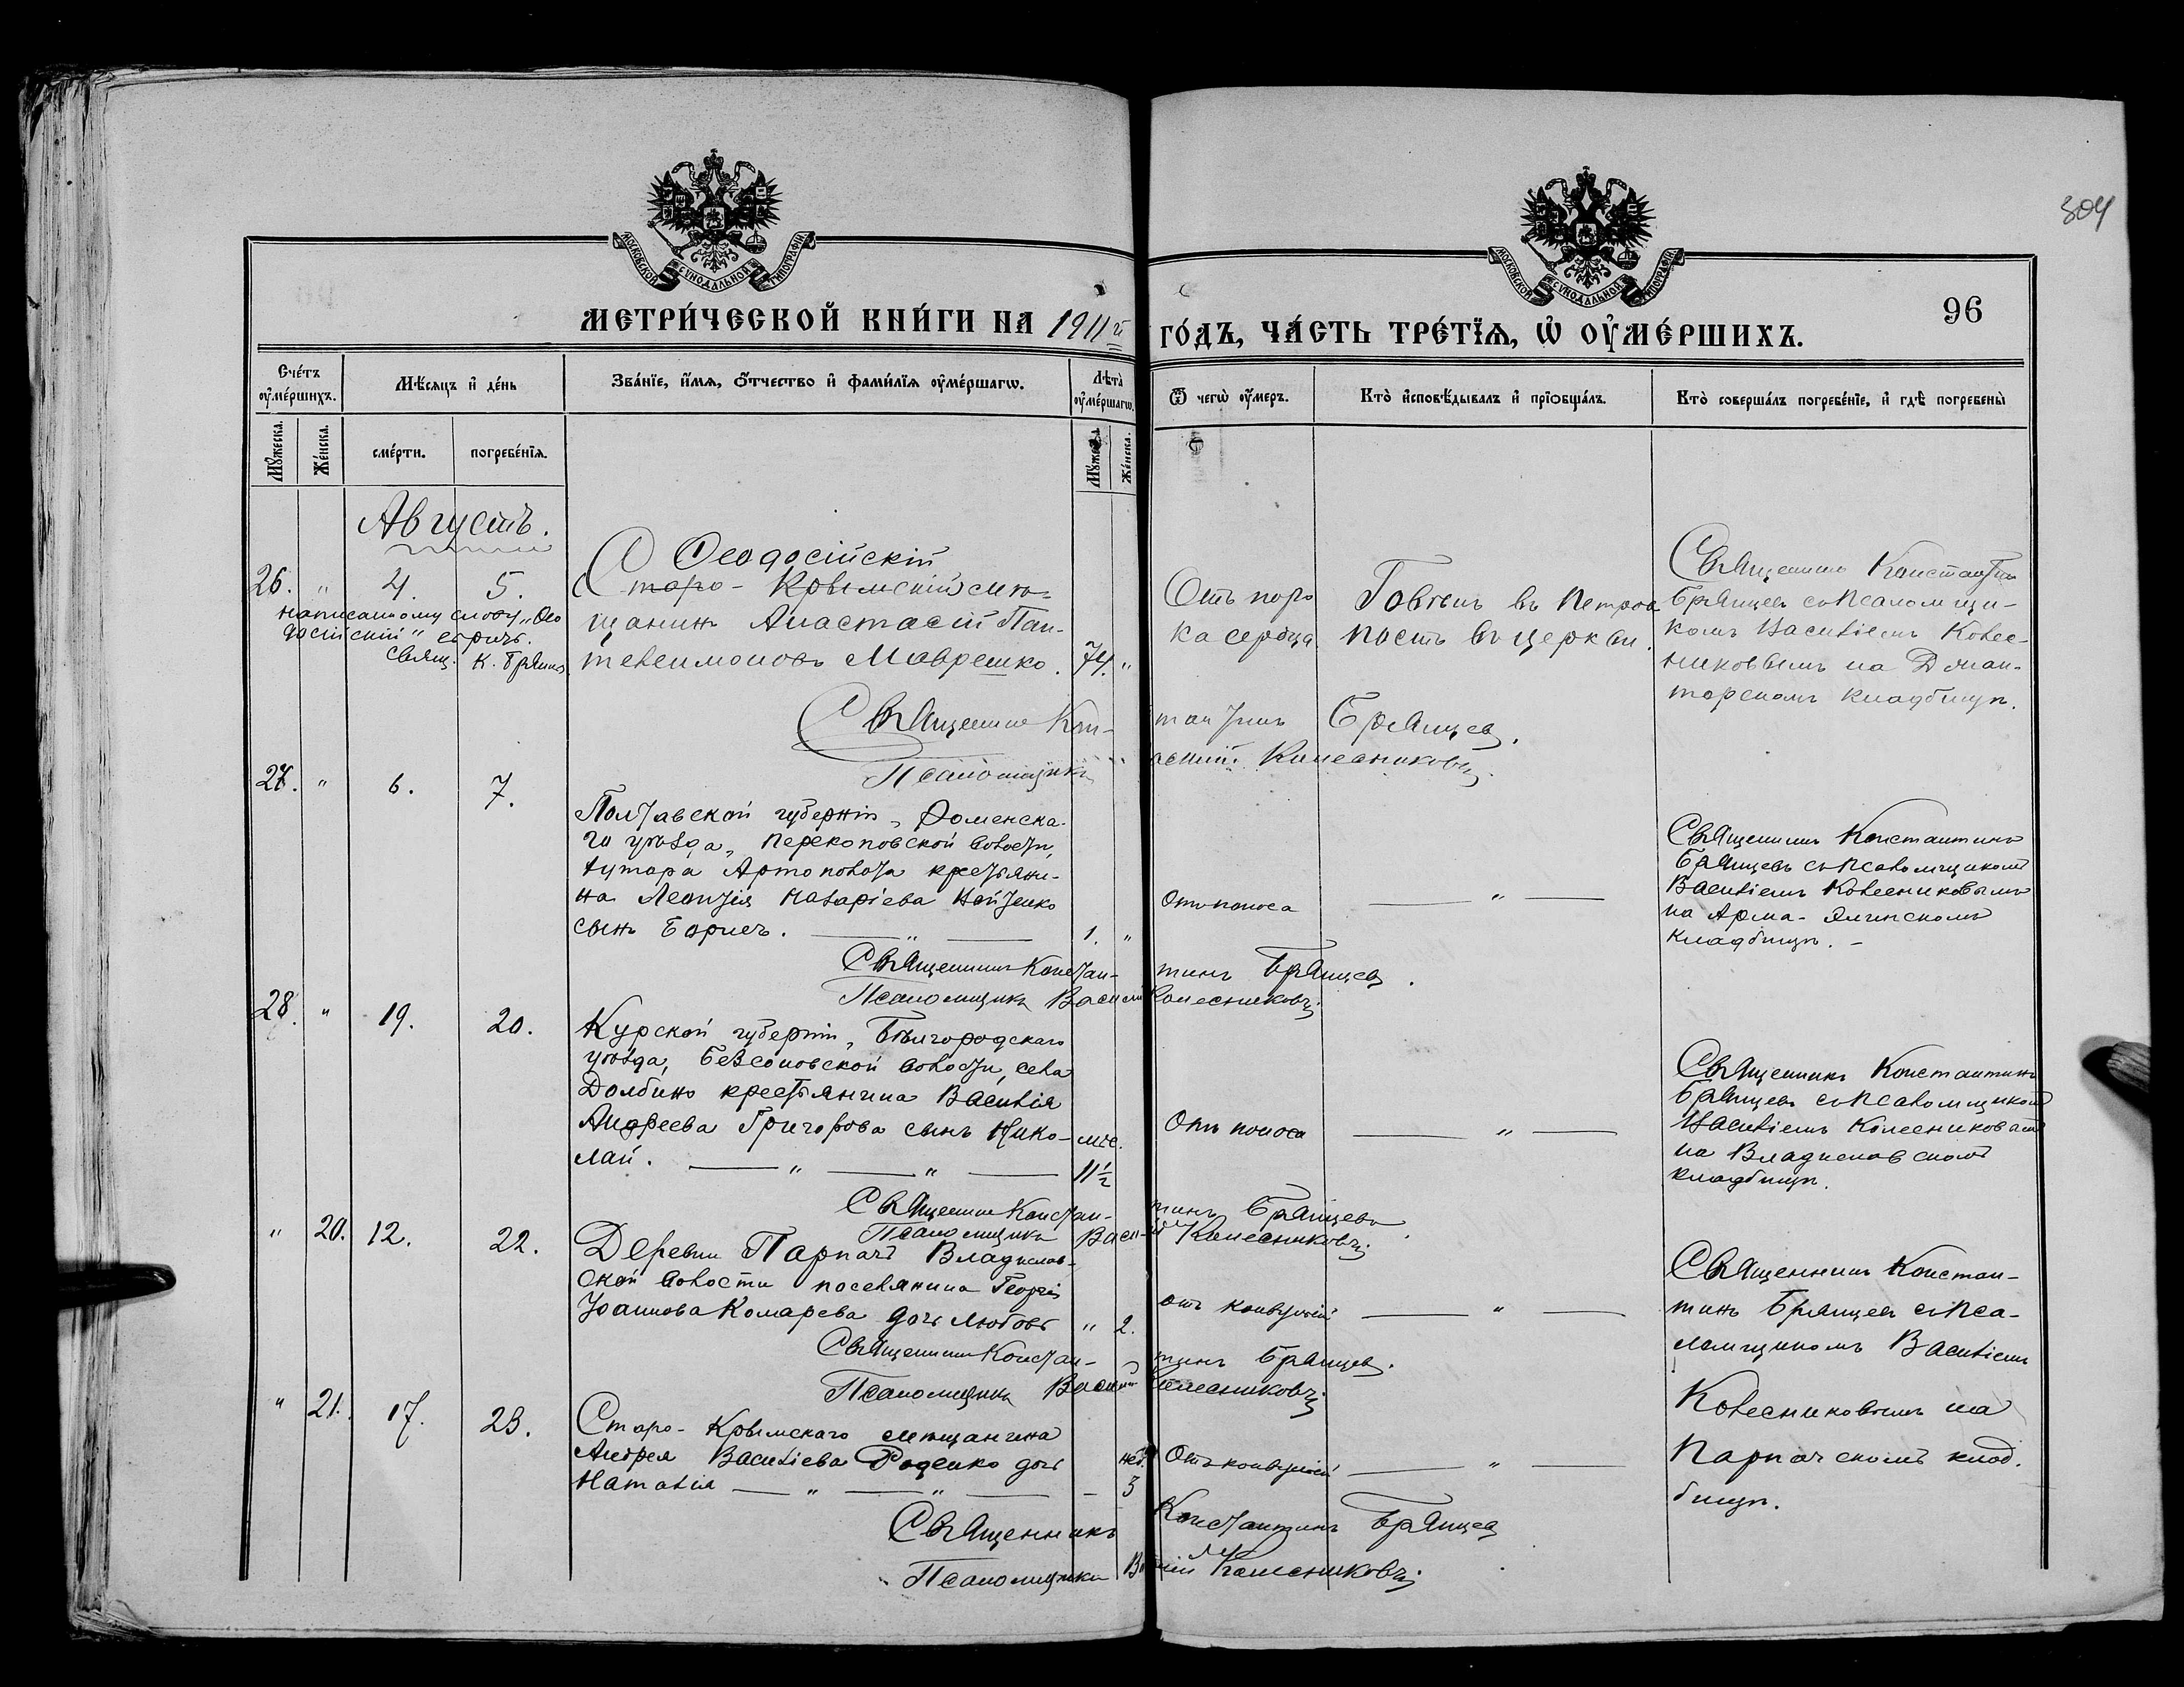 304
МОСКОВСКОЙ СѴНОДАЛЬНОЙ ТИПОГРАФІИ
МОСКОВСКОЙ СѴНОДАЛЬНОЙ ТИПОГРАФІИ
96
МЕТРИ́ЧЕСКОЙ КНИ́ГИ НА 1911й ГО́ДЪ, ЧА́СТЬ ТРЕ́ТЇѦ, Ѡ҆ ОУ҆МЕ́РШИХЪ.
Сче́тъ оу҆ме́ршихъ.
Мѣ́сяцъ и҆ де́нь
Зва́нїе, и҆́мя, ѻ҆́тчество и҆ фами́лїя оу҆ме́ршагѡ.
Лѣта̀ оу҆ме́ршагѡ.
Ѿ чегѡ̀ оу҆́меръ.
Кто̀ и҆сповѣ́дывалъ и҆ прїобща́лъ.
Кто̀ соверша́лъ погребе́нїе, и҆ гдѣ̀ погребены̀
Мꙋ́жеска.
Же́нска.
сме́рти.
погребе́нїя.
Мꙋ́жеска.
Же́нска.
Августъ.
26. " 4. 5.
Ѳеодосійскій
Старо-Крымскій мѣ-
щанинъ Анастасій Пан-
телеимоновъ Маврешко. 74. "
написанному слову „Ѳео
досійскій" вѣрить.
Свящ. К. Брянц.
Отъ поро
ка сердца
Говѣлъ въ Петров
постъ въ церкви.
Священникъ Константин
Брянцевъ съ псаломщи-
комъ Василіемъ Колес-
никовымъ на
кладбищѣ.
Священникъ Константинъ Брянцев.
Псаломщикъ Василій Колесниковъ
27. " 6. 7.
Полтавской губерніи, Роменска-
го уѣзда, Перекоповской волости,
хутора Артополота крестьяни-
на Леонтія Назаріева
сынъ Борисъ. — " — 1. "
Отъ поноса
— " —
Священникъ Константинъ
Брянцевъ съ псаломщикомъ
Василіемъ Колесниковымъ
на Арма-Элинскомъ
кладбищѣ. -
Священникъ Константинъ Брянцев.
Псаломщикъ Василій Колесниковъ
28. " 19. 20.
Курской губерніи, Бѣлгородскаго
уѣзда, Безсоновской волости, села
Долбино крестьянина Василія
Андреева Григорова сынъ Нико- мѣс.
лай. — " — " — 11½
Отъ поноса
— " —
Священникъ Константинъ
Брянцевъ съ псаломщикомъ
Василіемъ Колесниковымъ
на Владиславскомъ
кладбищѣ.
Священникъ Константинъ Брянцевъ
Псаломщикъ Василій Колесниковъ
" 20. 12. 22.
Деревни Парпачъ Владислав-
ской волости поселянина Георгія
Іоаннова Комарева дочь Любовь " 2.
отъ конвульсій
— " —
Священникъ Констан-
тинъ Брянцевъ съ пса-
ломщикомъ Василіемъ
Колесниковымъ на
Парпачскомъ клад-
бищѣ.
Священникъ Константинъ Брянцев.
Псаломщикъ Василій Колесниковъ
" 21. 17. 23.
Старо-Крымскаго мѣщанина
Андрея Василіева Роденко дочь нед.
Наталія — " — " — - 3
Отъ конвульсій
— " —
Священникъ Константинъ Брянцев
Псаломщикъ Василій Колесниковъ